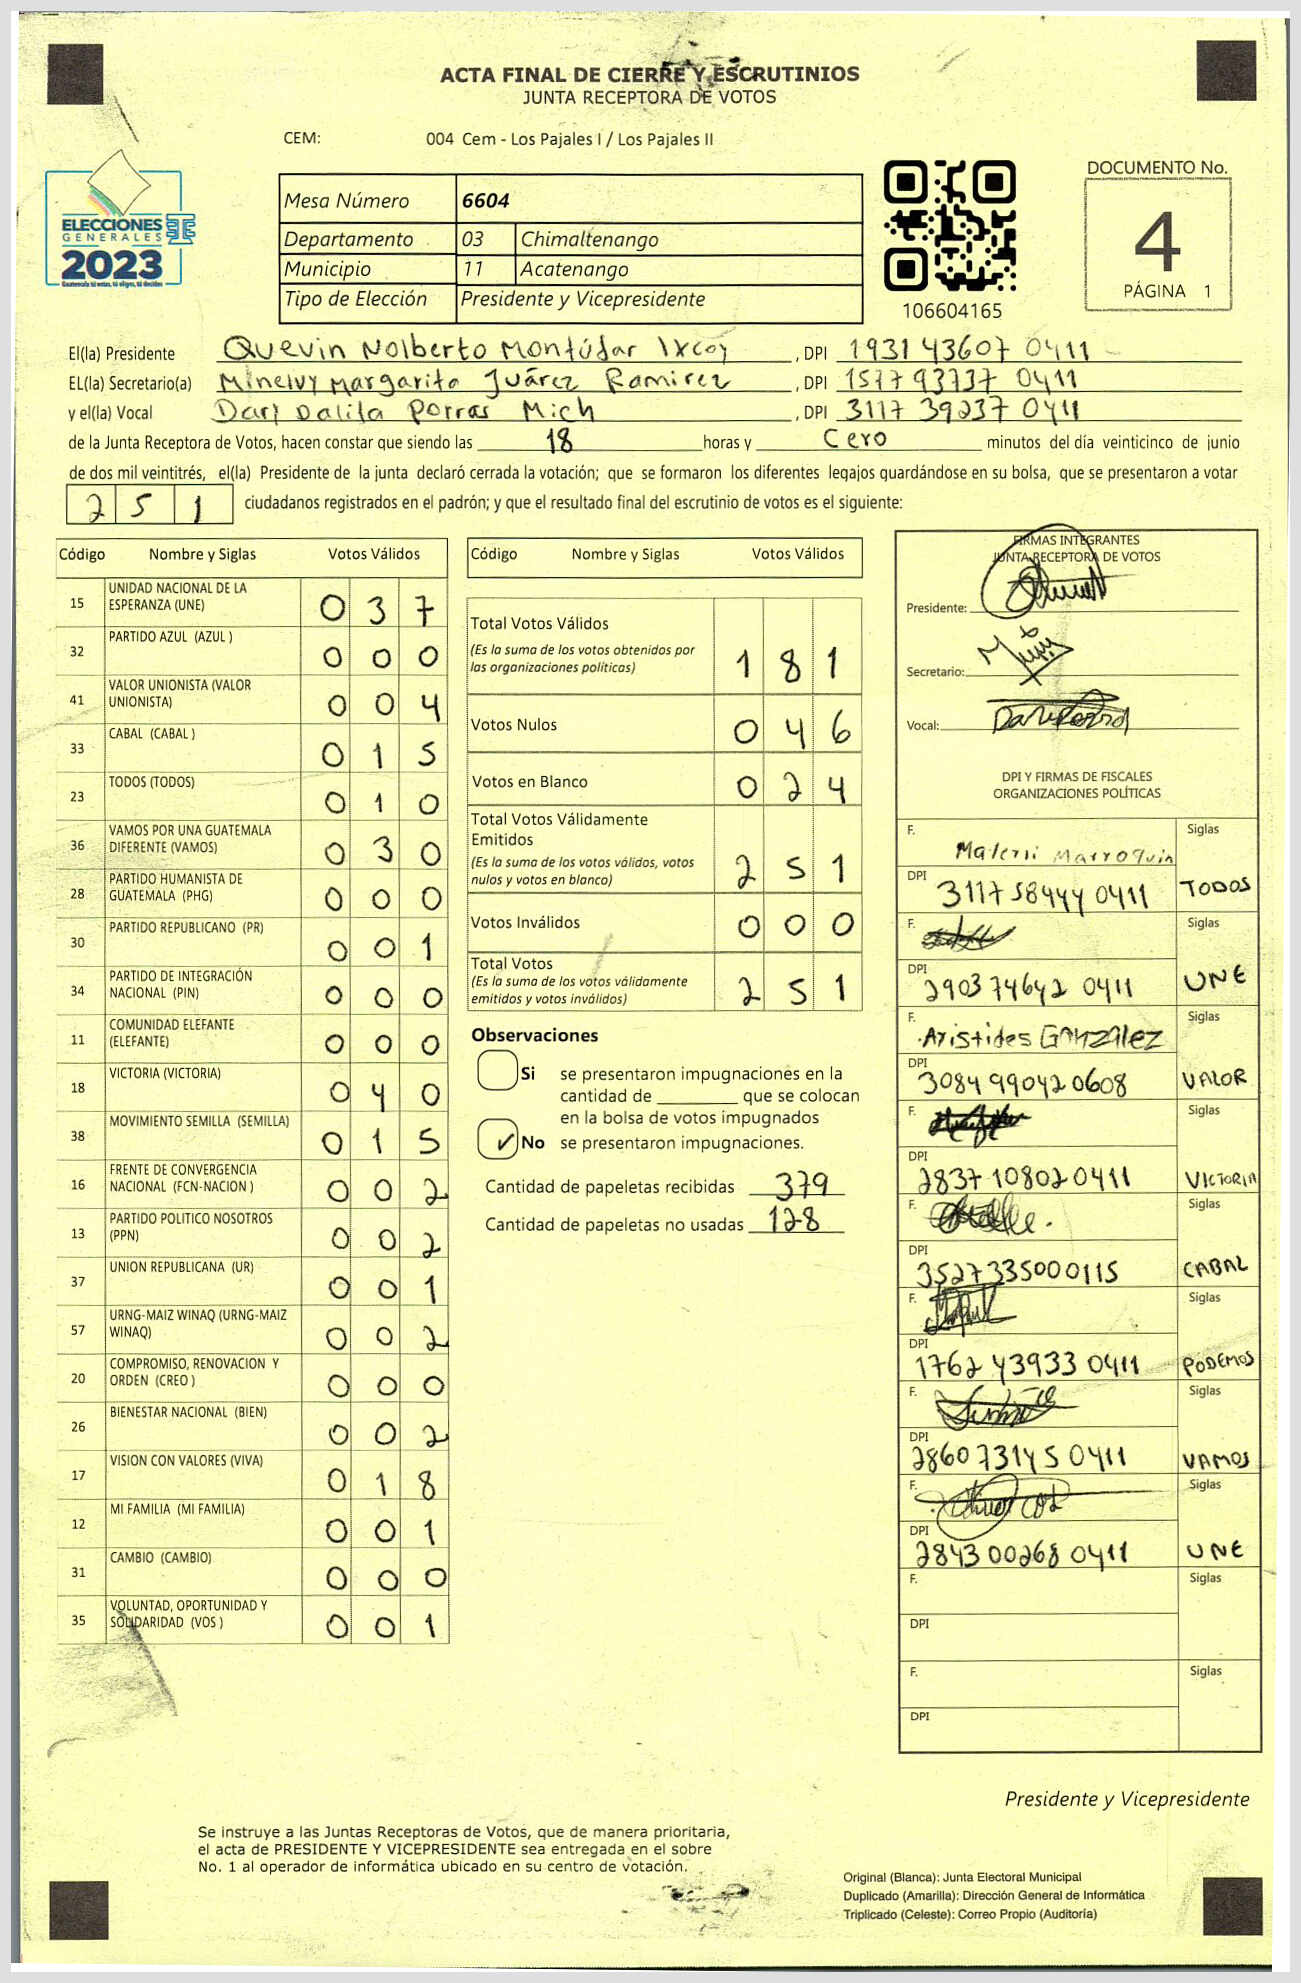 ACTA FINAL DE CIERRE Y ESCRUTINIOS
JUNTA RECEPTORA DE VOTOS
CEM: 004 Cem - Los Pajales I / Los Pajales II
ELECCIONES
GENERALES
2023
Mesa Número 6604
Departamento 03 Chimaltenango
Municipio 11 Acatenango
Tipo de Elección Presidente y Vicepresidente
106604165
DOCUMENTO No.
4
PÁGINA 1
El(la) Presidente Quevin Nolberto Montúfar Ixcoy , DPI 1931 43607 0411
EL(la) Secretario(a) Minelvy Margarita Juárez Ramirez , DPI 1577 93737 0411
y el(la) Vocal Darj Dalila Porras Mich , DPI 3117 39237 0411
de la Junta Receptora de Votos, hacen constar que siendo las 18 horas y Cero minutos del día veinticinco de junio
de dos mil veintitrés, el(la) Presidente de la junta declaró cerrada la votación; que se formaron los diferentes legajos quardándose en su bolsa, que se presentaron a votar
251 ciudadanos registrados en el padrón; y que el resultado final del escrutinio de votos es el siguiente:
Código Nombre y Siglas Votos Válidos
15 UNIDAD NACIONAL DE LA ESPERANZA (UNE) 037
32 PARTIDO AZUL (AZUL ) 000
41 VALOR UNIONISTA (VALOR UNIONISTA) 004
33 CABAL (CABAL ) 015
23 TODOS (TODOS) 010
36 VAMOS POR UNA GUATEMALA DIFERENTE (VAMOS) 030
28 PARTIDO HUMANISTA DE GUATEMALA (PHG) 000
30 PARTIDO REPUBLICANO (PR) 001
34 PARTIDO DE INTEGRACIÓN NACIONAL (PIN) 000
11 COMUNIDAD ELEFANTE (ELEFANTE) 000
18 VICTORIA (VICTORIA) 040
38 MOVIMIENTO SEMILLA (SEMILLA) 015
16 FRENTE DE CONVERGENCIA NACIONAL (FCN-NACION ) 002
13 PARTIDO POLITICO NOSOTROS (PPN) 002
37 UNION REPUBLICANA (UR) 001
57 URNG-MAIZ WINAQ (URNG-MAIZ WINAQ) 002
20 COMPROMISO, RENOVACION Y ORDEN (CREO ) 000
26 BIENESTAR NACIONAL (BIEN) 002
17 VISION CON VALORES (VIVA) 018
12 MI FAMILIA (MI FAMILIA) 001
31 CAMBIO (CAMBIO) 000
35 VOLUNTAD, OPORTUNIDAD Y SOLIDARIDAD (VOS ) 001
Código Nombre y Siglas Votos Válidos
Total Votos Válidos 181
(Es la suma de los votos obtenidos por las organizaciones políticas)
Votos Nulos 046
Votos en Blanco 024
Total Votos Válidamente Emitidos 251
(Es la suma de los votos válidos, votos nulos y votos en blanco)
Votos Inválidos 000
Total Votos 251
(Es la suma de los votos válidamente emitidos y votos inválidos)
Observaciones
Si se presentaron impugnaciones en la
cantidad de ________ que se colocan
en la bolsa de votos impugnados
✓ No se presentaron impugnaciones.
Cantidad de papeletas recibidas 379
Cantidad de papeletas no usadas 128
FIRMAS INTEGRANTES
JUNTA RECEPTORA DE VOTOS
Presidente:
Secretario:
Vocal:
DPI Y FIRMAS DE FISCALES
ORGANIZACIONES POLÍTICAS
F. Marroquin Siglas
DPI 3117 58444 0411 TODOS
F. Siglas
DPI 2903 74642 0411 UNE
F. Aristides González Siglas
DPI 3084 99042 0608 VALOR
F. Siglas
DPI 2837 10802 0411 VICTORIA
F. Siglas
DPI 3527335000115 CABAL
F. Siglas
DPI 1762 43933 0411 PODEMOS
F. Siglas
DPI 2860 73145 0411 VAMOS
F. Siglas
DPI 2843 00268 0411 UNE
F. Siglas
DPI
F. Siglas
DPI
Presidente y Vicepresidente
Se instruye a las Juntas Receptoras de Votos, que de manera prioritaria,
el acta de PRESIDENTE Y VICEPRESIDENTE sea entregada en el sobre
No. 1 al operador de informática ubicado en su centro de votación.
Original (Blanca): Junta Electoral Municipal
Duplicado (Amarilla): Dirección General de Informática
Triplicado (Celeste): Correo Propio (Auditoría)